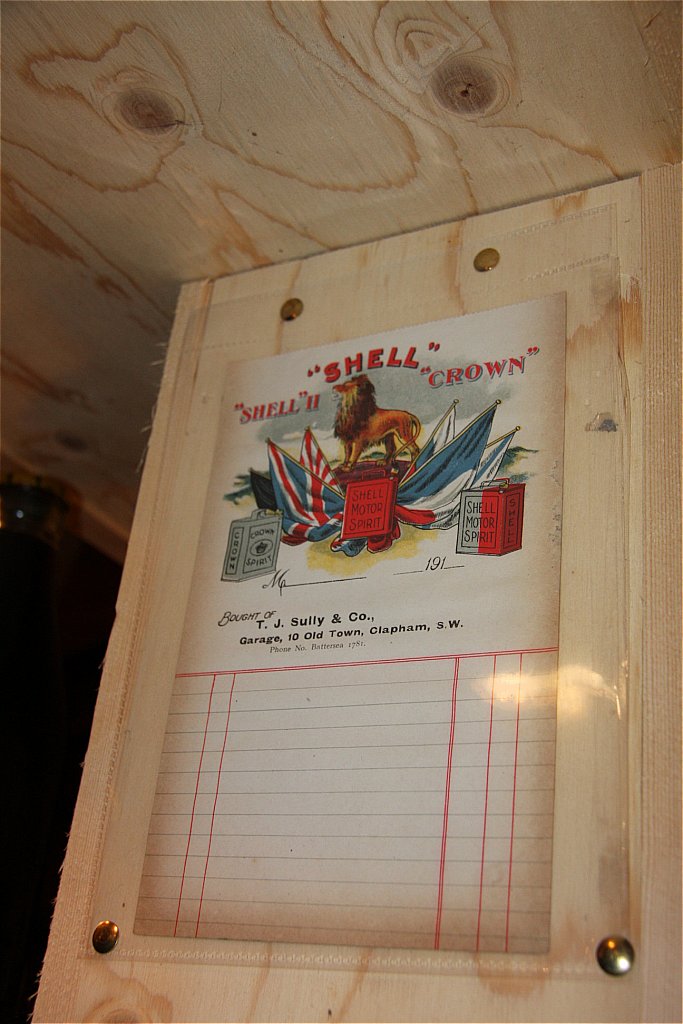 "SHELL"
"SHELL" II "CROWN"
SHELL
MOTOR
SPIRIT
SHELL
MOTOR
SPIRIT
SHELL
CROWN
CROWN
SPIRIT
M 191
BOUGHT OF
T. J. Sully & Co.,
Garage, 10 Old Town, Clapham, S.W.
Phone No. Battersea 1781.